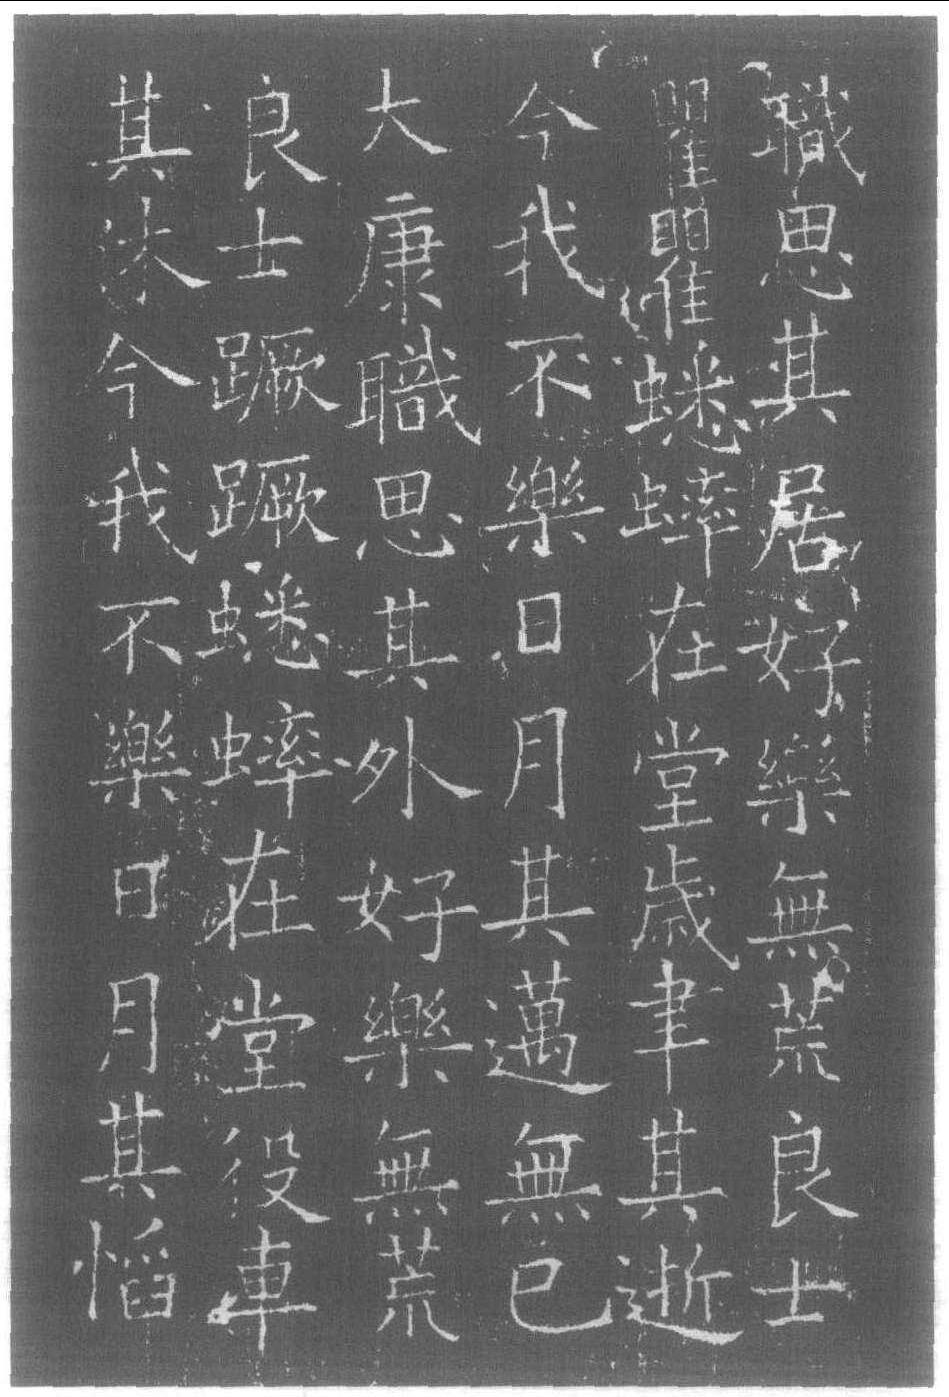 職思其居好樂無荒良士
瞿瞿蟋蟀在堂歲聿其逝
今我不樂日月其邁無已
大康職思其外好樂無荒
良士蹶蹶蟋蟀在堂役車
其休今我不樂日月其慆